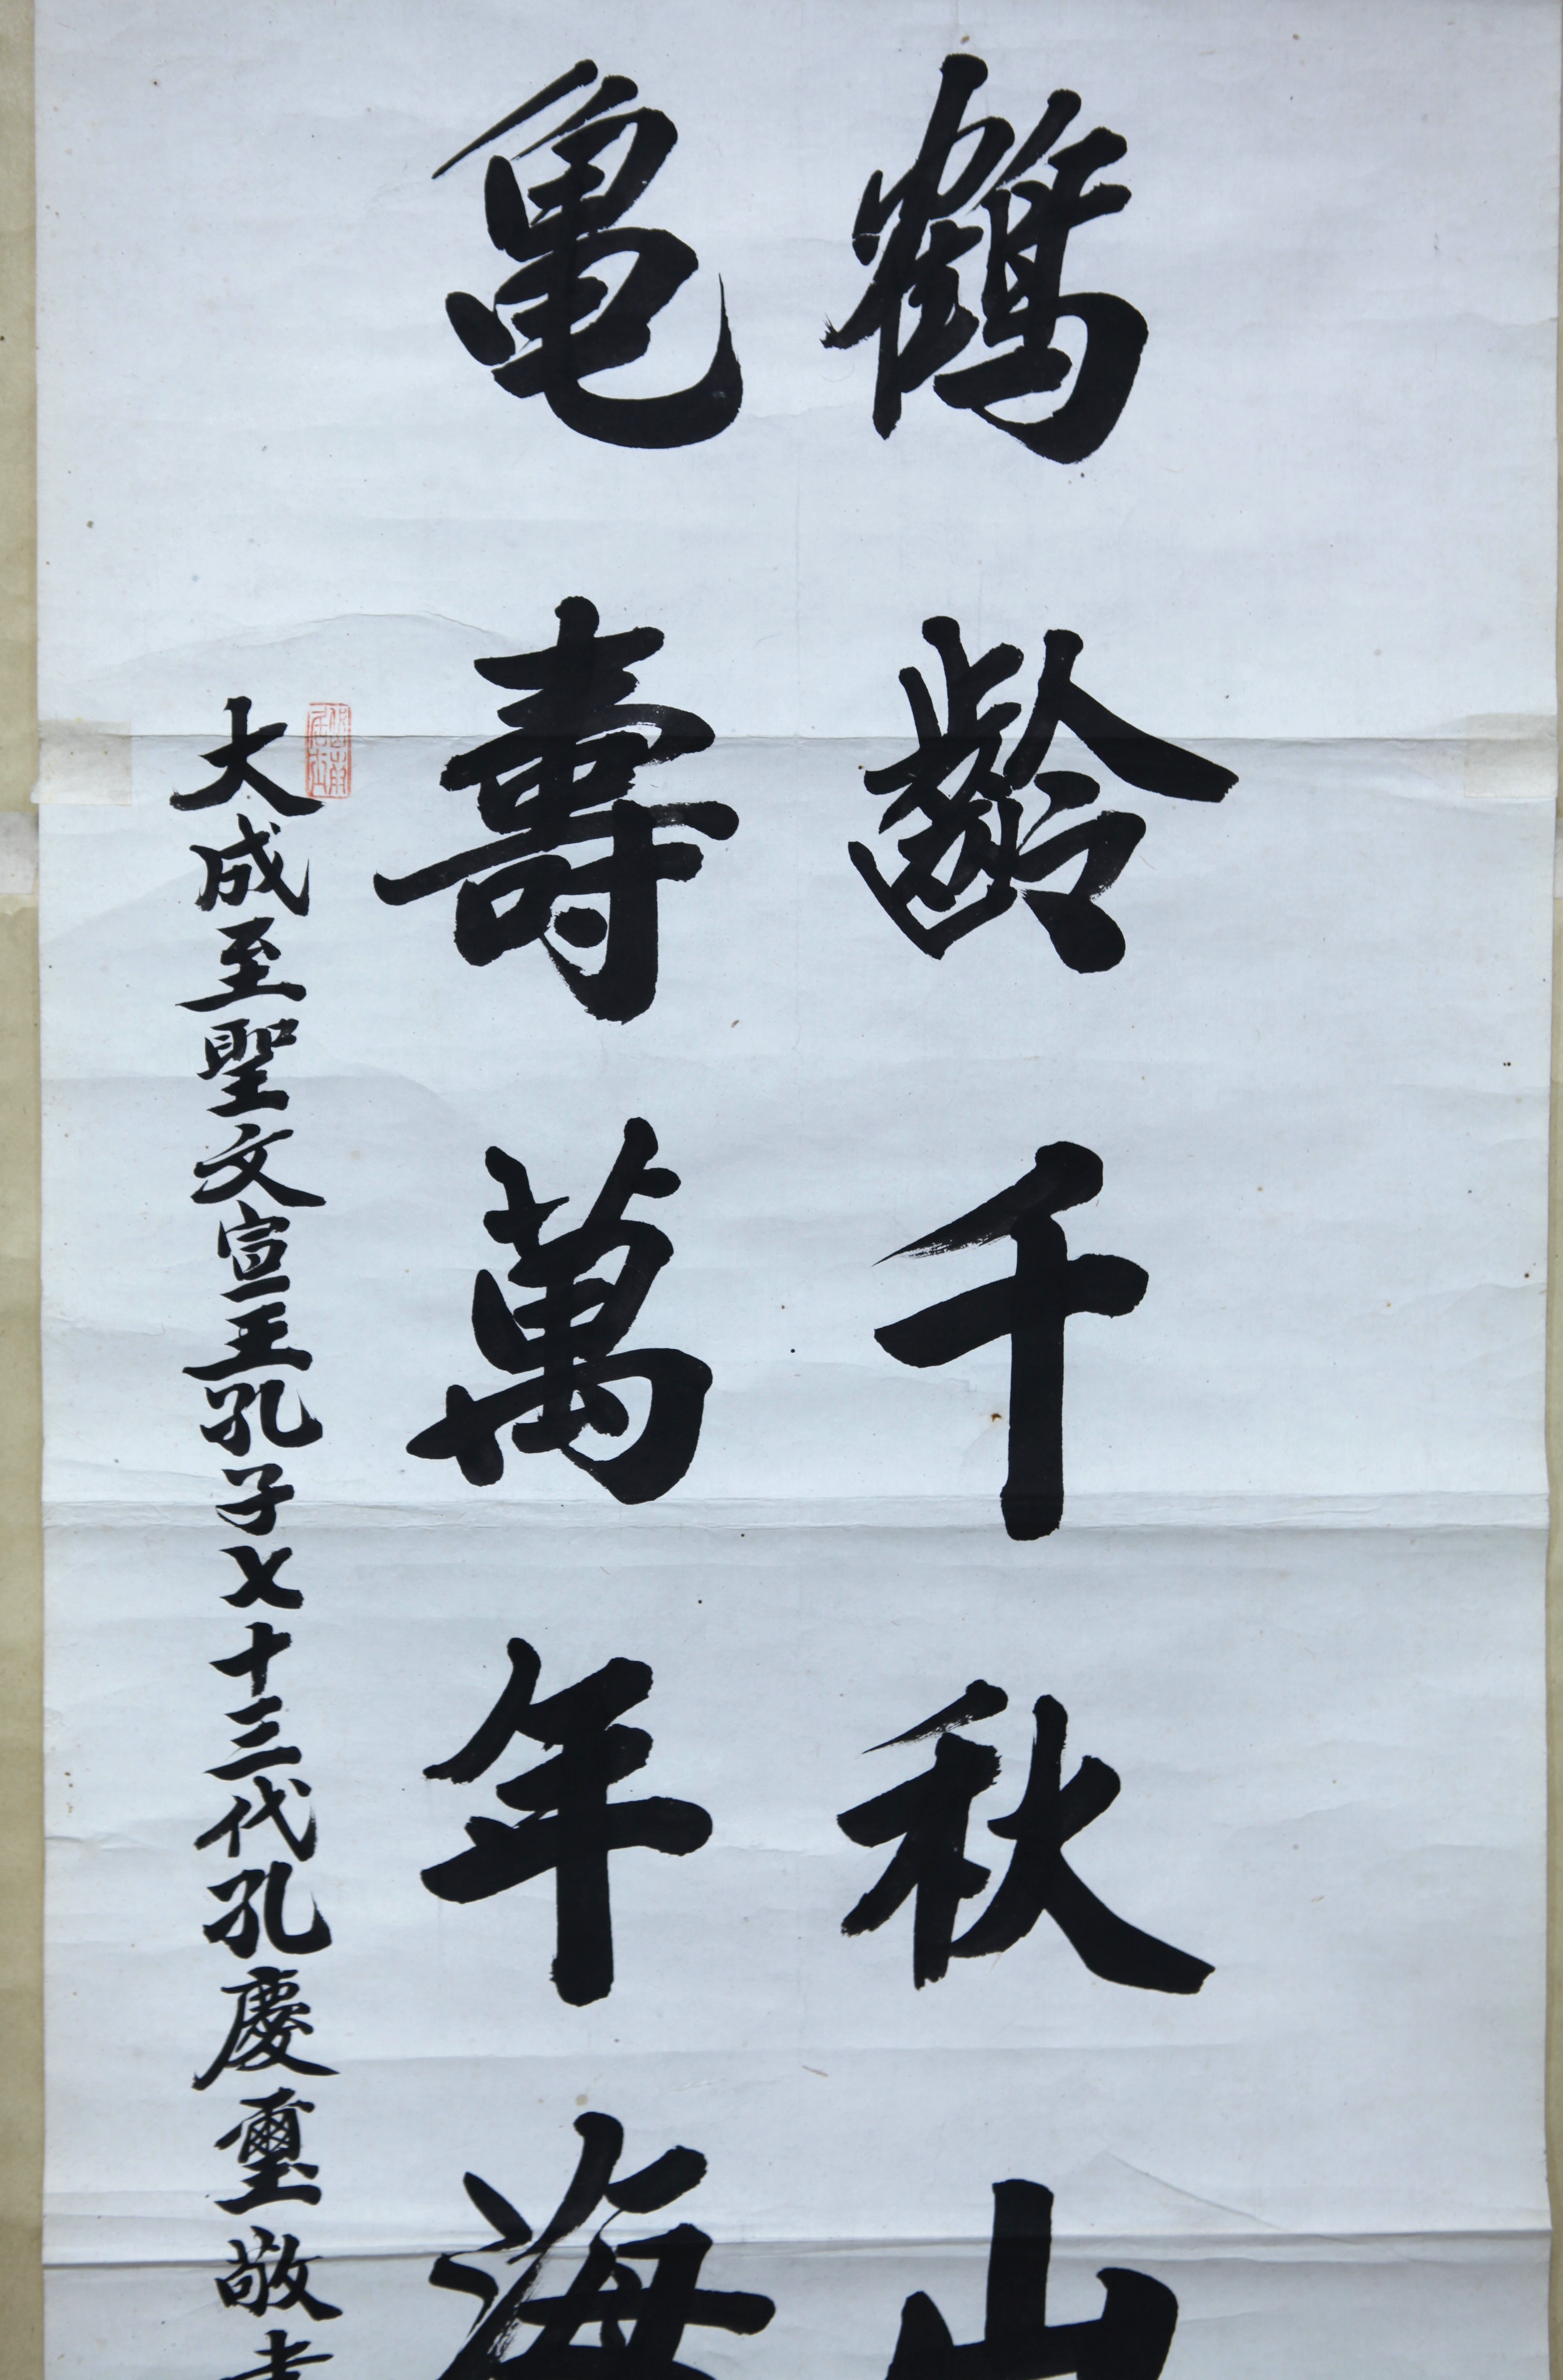 鶴齡千秋山
亀壽萬年海
大成至聖文宣王孔子七十三代孔慶璽敬書